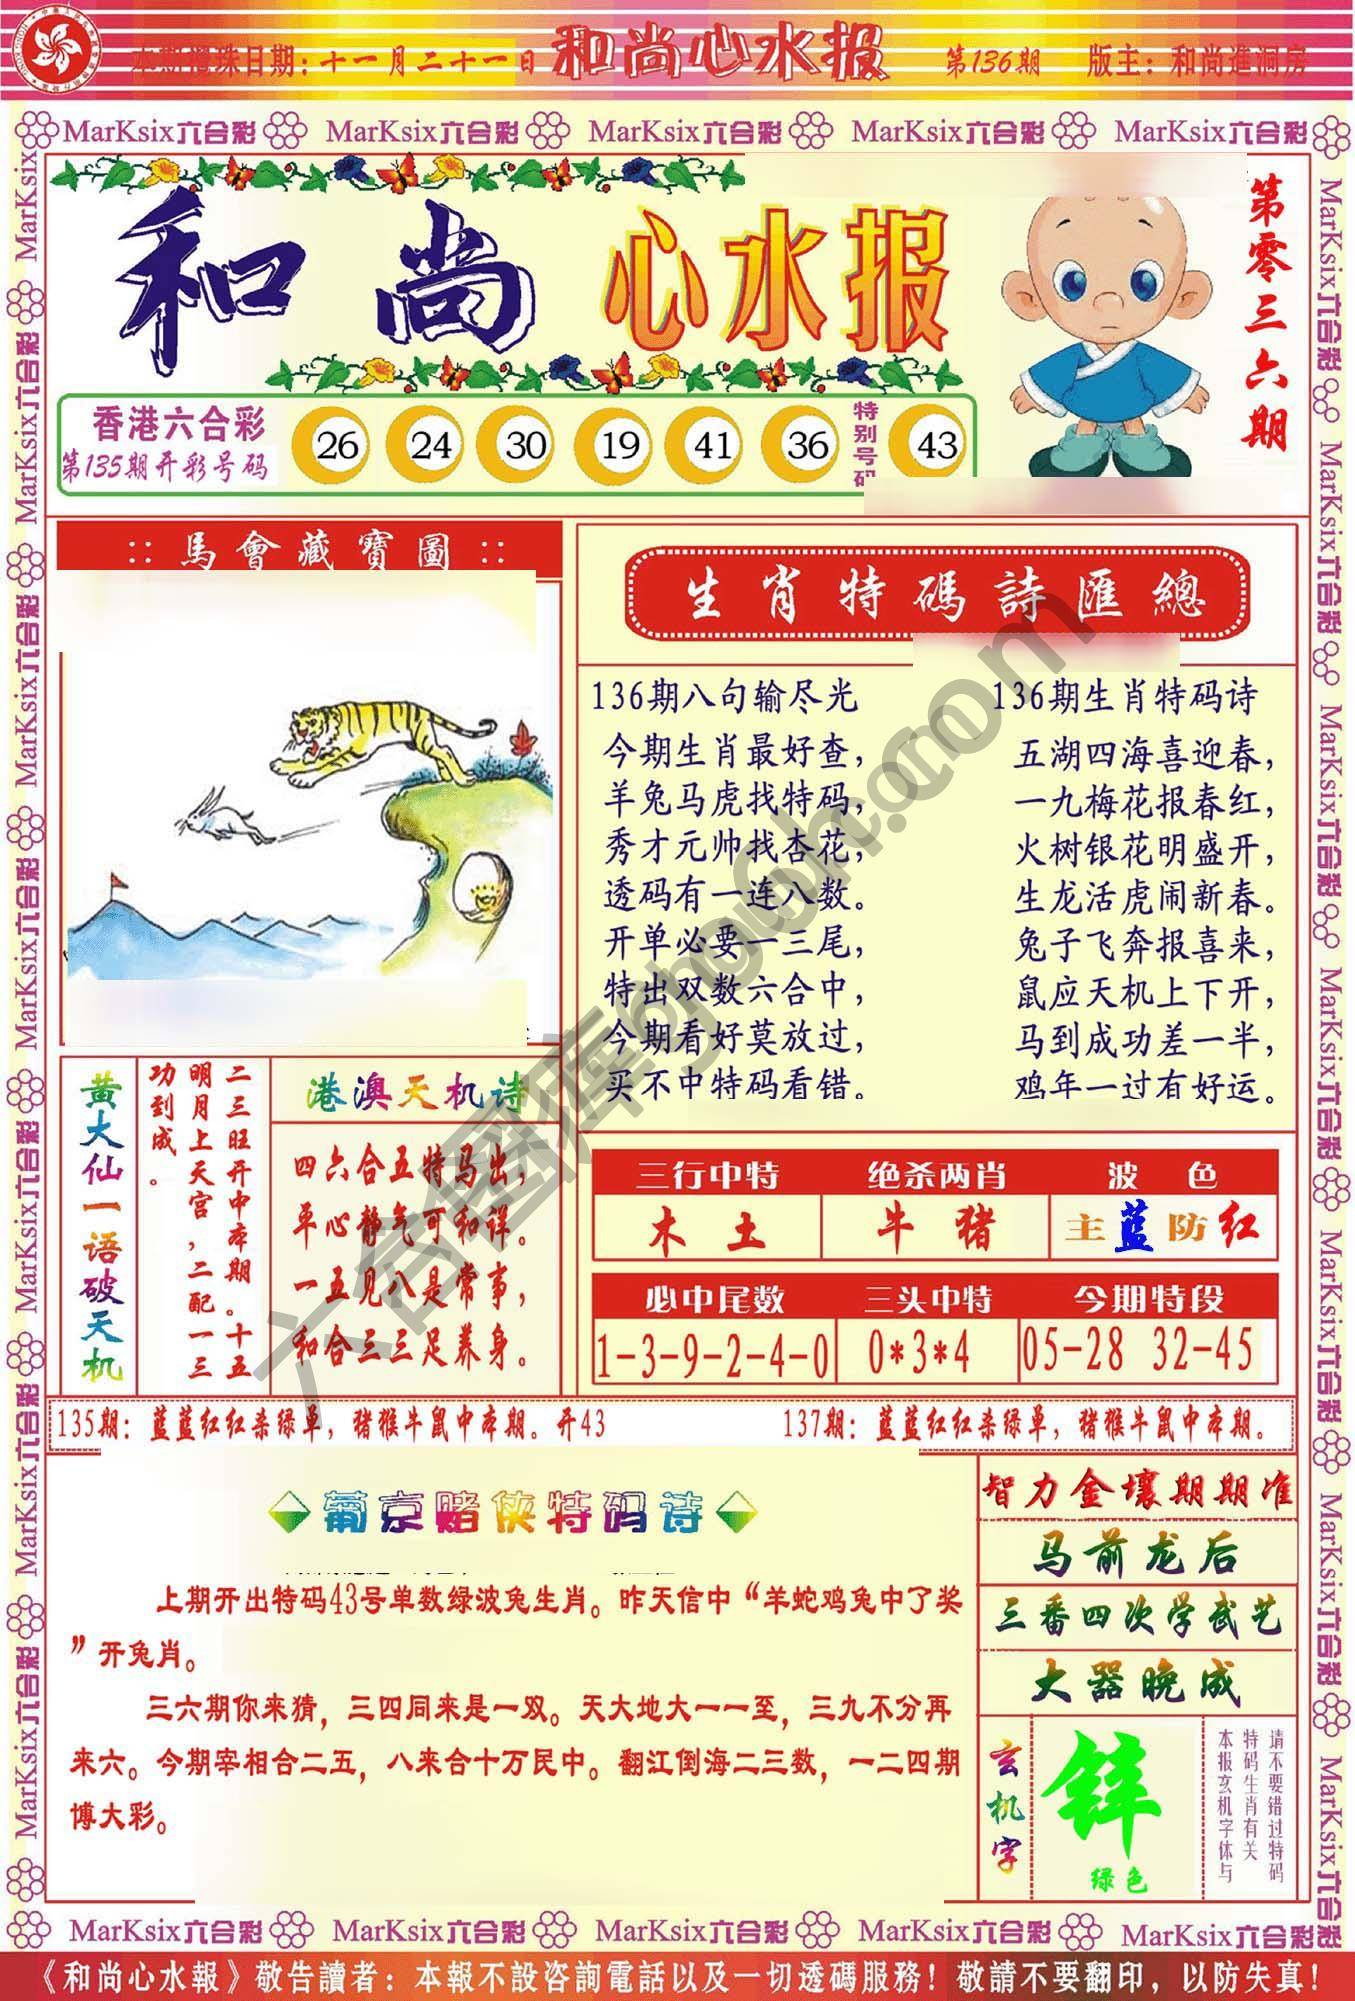 本期攪珠日期：十一月二十一日 和尚心水报 第136期 版主：和尚進洞房
MarKsix六合彩 MarKsix六合彩 MarKsix六合彩 MarKsix六合彩 MarKsix六合彩
和尚心水报
第零三六期
香港六合彩
第135期开彩号码
26 24 30 19 41 36 特别号码 43
::馬會藏寶圖::
生肖特碼詩匯總
136期八句输尽光
今期生肖最好查，
羊兔马虎找特码，
秀才元帅找杏花，
透码有一连八数。
开单必要一三尾，
特出双数六合中，
今期看好莫放过，
买不中特码看错。
136期生肖特码诗
五湖四海喜迎春，
一九梅花报春红，
火树银花明盛开，
生龙活虎闹新春。
兔子飞奔报喜来，
鼠应天机上下开，
马到成功差一半，
鸡年一过有好运。
黄大仙一语破天机
二三旺开中本期。十五
明月上天宫，二配一三
功到成。
港澳天机诗
四六合五特马出，
平心静气可和详。
一五见八是常事，
和合三三足养身。
三行中特 绝杀两肖 波色
木土 牛猪 主蓝防红
必中尾数 三头中特 今期特段
1-3-9-2-4-0 0*3*4 05-28 32-45
135期：蓝蓝红红杀绿单，猪猴牛鼠中本期。开43
137期：蓝蓝红红杀绿单，猪猴牛鼠中本期。
葡京赌侠特码诗
上期开出特码43号单数绿波兔生肖。昨天信中“羊蛇鸡兔中了奖
”开兔肖。
三六期你来猜，三四同来是一双。天大地大一一至，三九不分再
来六。今期宰相合二五，八来合十万民中。翻江倒海二三数，一二四期
博大彩。
智力金壤期期准
马前龙后
三番四次学武艺
大器晚成
玄机字
锌
绿色
请不要错过特码
特码生肖有关
本报玄机字体与
六合图库
MarKsix六合彩 MarKsix六合彩 MarKsix六合彩 MarKsix六合彩 MarKsix六合彩
《和尚心水報》敬告讀者：本報不設咨詢電話以及一切透碼服務！敬請不要翻印，以防失真！